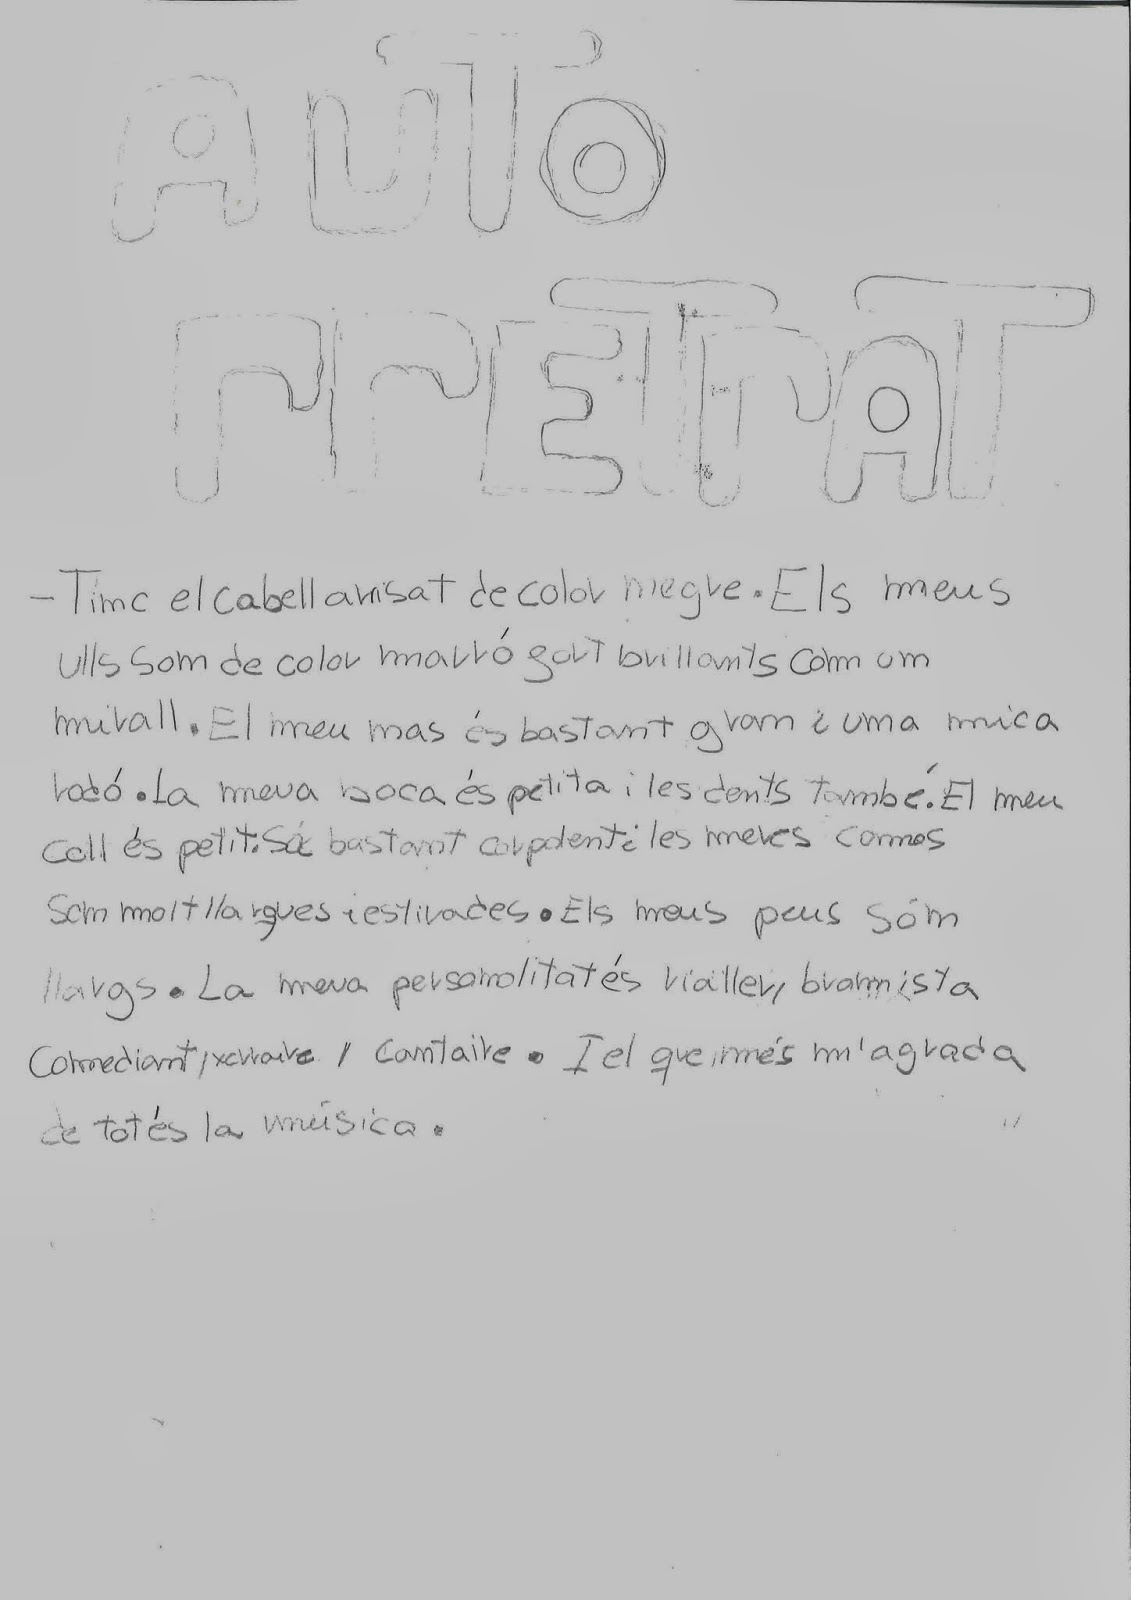 AUTO
RRETRAT
- Tinc el cabell arrisat de color negre. Els meus
ulls son de color marró gort brillants com un
mirall. El meu nas és bastant gran i una mica
rodó. La meva boca és petita i les dents també. El meu
coll és petit. Sóc bastant corpolent i les meves cames
son molt llargues i estirades. Els meus peus són
llargs. La meva personalitat és rialler, bromista
Comediant, xerraire, cantaire. I el que més m'agrada
de tot és la música.